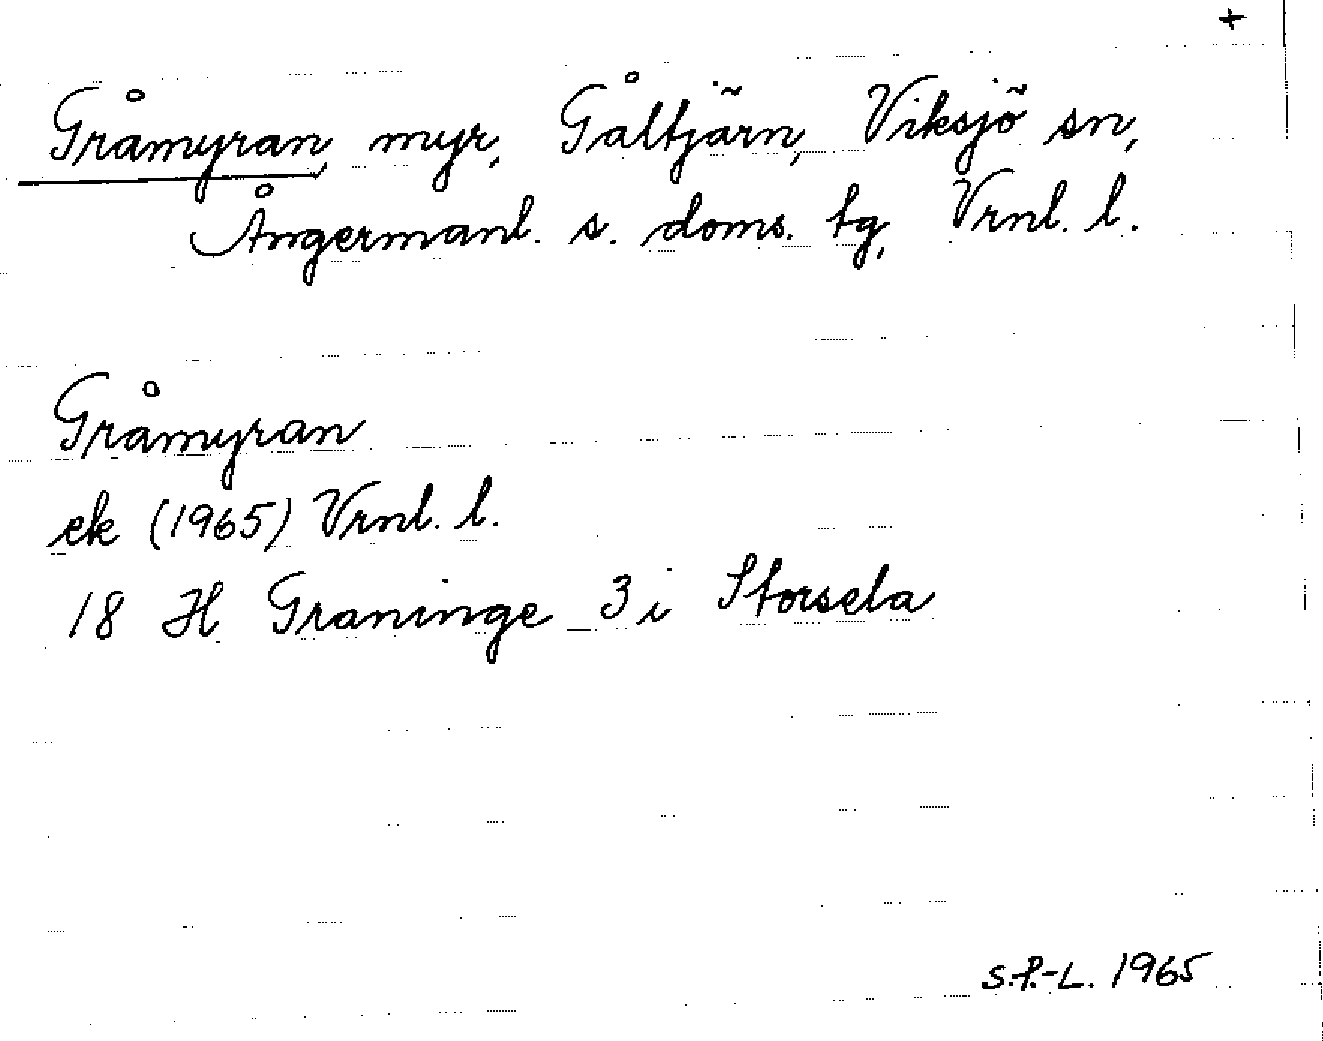 +
Gråmyran, myr, Gåltjärn, Viksjö sn,
Ångermanl. s. doms. tg, Vrnl. l.
Gråmyran
ek (1965) Vrnl. l.
18 H Graninge 3 i Storsela
S.P.-L. 1965